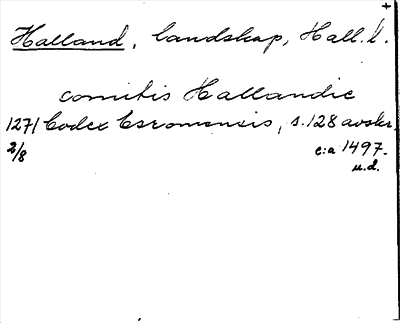 +
Halland, landskap, Hall. l.
comitis Hallandie
1271 Codex Esromensis, s. 128 avskr.
2/8 c:a 1497.
u.d.